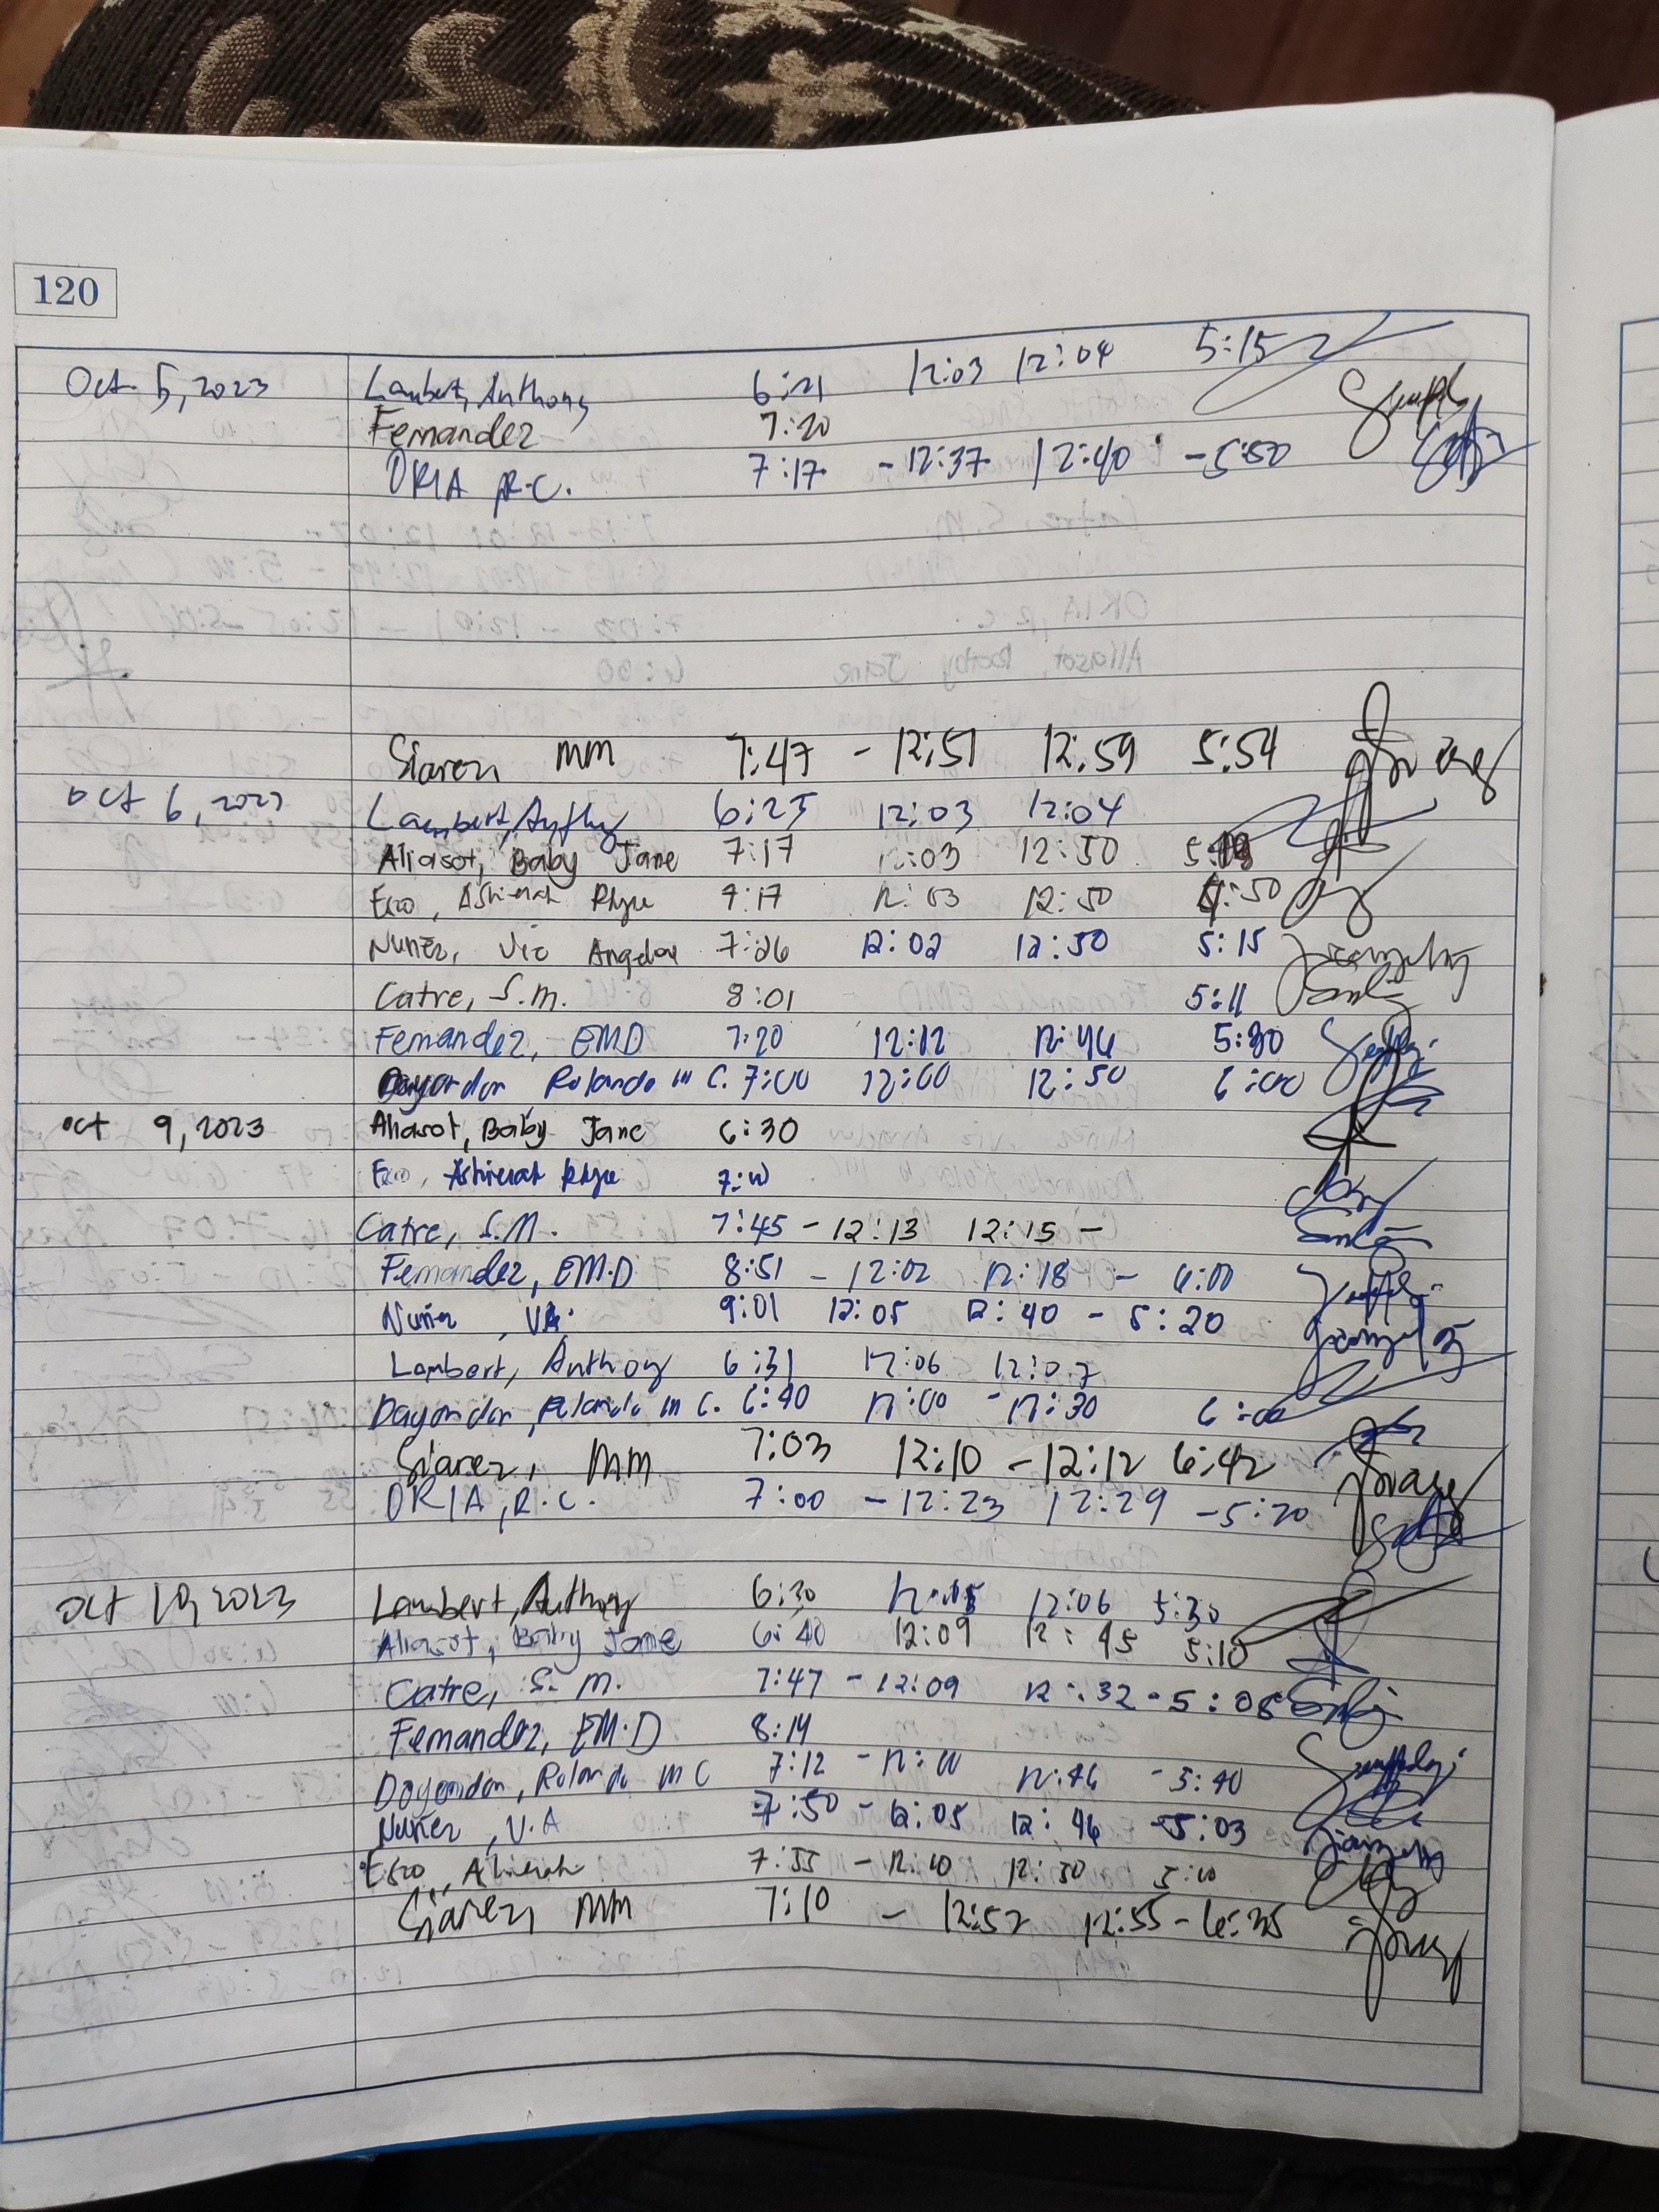 120
Oct 5, 2023 Lambert, Anthony 6:21 12:03 12:04 5:15
Fernandez 7:20
ORIA R.C. 7:17 - 12:37 12:40 - 5:50
Siarez, MM 7:47 - 12:51 12:59 5:54
Oct 6, 2023 Lambert, Anthony 6:25 12:03 12:04
Aliasot, Baby Jane 7:17 12:03 12:50
Esco, Ashierah Rhye 7:17 12:03 12:50 :50
Nuñez, Vic Angelou 7:26 12:02 12:50 5:15
Catre, S.M. 8:01 5:11
Fernandez, EMD 7:20 12:12 12:46 5:30
Dayondon Rolando III C. 7:00 12:00 12:50 6:00
oct 9, 2023 Aliasot, Baby Jane 6:30
Esco, Ashierah Rhye
Catre, S.M. 7:45 - 12:13 12:15 -
Fernandez, EM.D 8:51 - 12:02 12:18 - 6:00
Nuñez, VA. 9:01 12:05 12:40 - 5:20
Lambert, Anthony 6:31 12:06 12:07
Dayondon, Rolando III C. 6:40 12:00 - 12:30 6:00
Siarez, MM 7:03 12:10 - 12:12 6:42
ORIA, R.C. 7:00 - 12:23 12:29 - 5:20
Oct 10, 2023 Lambert, Anthony 6:30 12:05 12:06 5:30
Aliasot, Baby Jane 6:40 12:09 12:45 5:10
Catre, S. M. 7:47 - 12:09 12:32 - 5:08
Fernandez, EM.D 8:14
Dayondon, Rolando III C 7:12 - 12:00 12:46 - 5:40
Nuñez, V.A 7:50 - 12:05 12:46 - 5:03
Esco, Ashierah 7:55 - 12:10 12:30 5:10
Siarez, MM 7:10 - 12:52 12:55 - 6:35